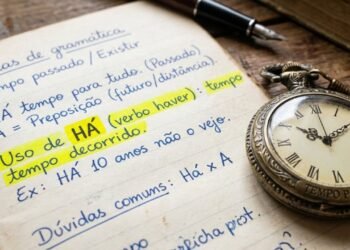 as de gramática
mpo passado / Existir
Á tempo para tudo. (Passado)
A = Preposição (futuro/distância).
Uso de HÁ (verbo haver): tempo
tempo decorrido.
Ex: HÁ 10 anos não o vejo.
Dúvidas comuns: Há x A
tempo: